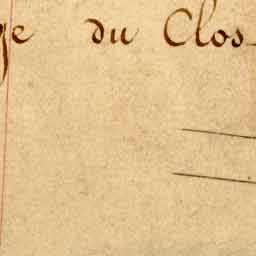 ge du Clos